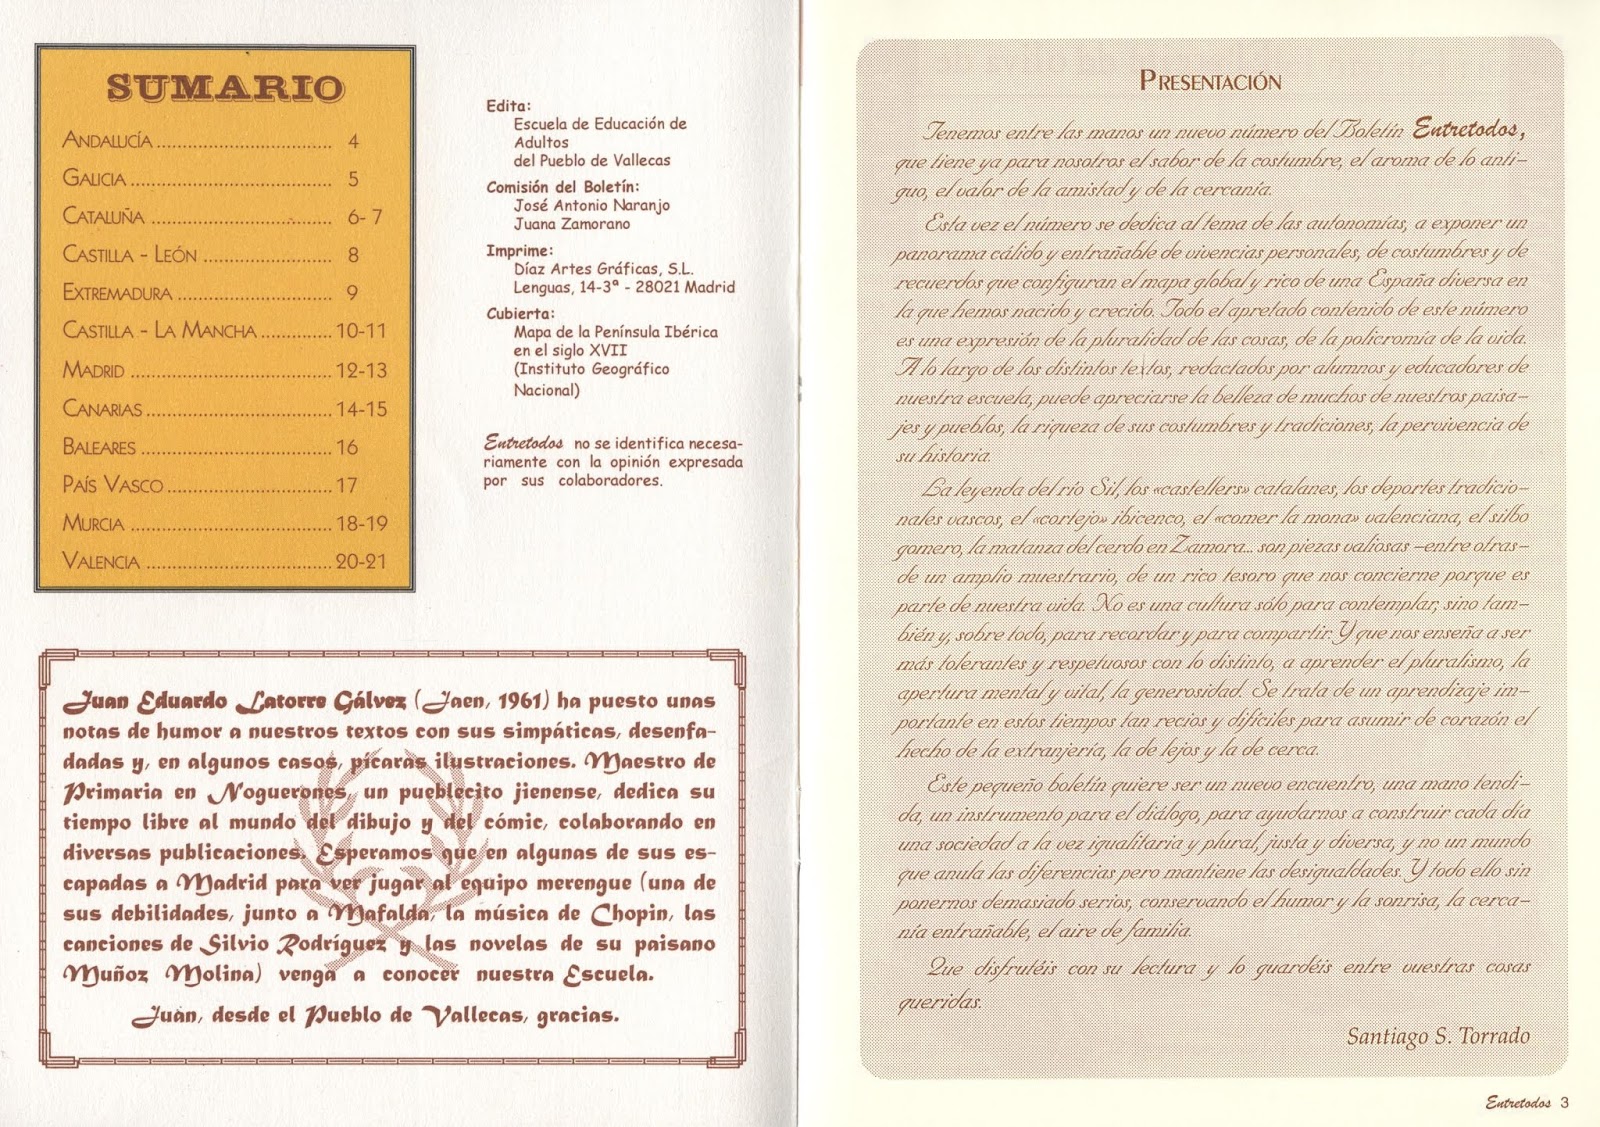 SUMARIO
ANDALUCÍA ................................ 4
GALICIA ..................................... 5
CATALUÑA ................................. 6- 7
CASTILLA - LEÓN ........................ 8
EXTREMADURA ............................ 9
CASTILLA - LA MANCHA ............. 10-11
MADRID ..................................... 12-13
CANARIAS .................................. 14-15
BALEARES ................................... 16
PAÍS VASCO .............................. 17
MURCIA ..................................... 18-19
VALENCIA .................................. 20-21
Edita:
Escuela de Educación de
Adultos
del Pueblo de Vallecas
Comisión del Boletín:
José Antonio Naranjo
Juana Zamorano
Imprime:
Díaz Artes Gráficas, S.L.
Lenguas, 14-3ª - 28021 Madrid
Cubierta:
Mapa de la Península Ibérica
en el siglo XVII
(Instituto Geográfico
Nacional)
Entretodos no se identifica necesa-
riamente con la opinión expresada
por sus colaboradores.
Juan Eduardo Latorre Gálvez (Jaen, 1961) ha puesto unas
notas de humor a nuestros textos con sus simpáticas, desenfa-
dadas y, en algunos casos, pícaras ilustraciones. Maestro de
Primaria en Noguerones, un pueblecito jienense, dedica su
tiempo libre al mundo del dibujo y del cómic, colaborando en
diversas publicaciones. Esperamos que en algunas de sus es-
capadas a Madrid para ver jugar al equipo merengue (una de
sus debilidades, junto a Mafalda, la música de Chopin, las
canciones de Silvio Rodríguez y las novelas de su paisano
Muñoz Molina) venga a conocer nuestra Escuela.
Juan, desde el Pueblo de Vallecas, gracias.
PRESENTACIÓN
Tenemos entre las manos un nuevo número del Boletín Entretodos,
que tiene ya para nosotros el sabor de la costumbre, el aroma de lo anti-
guo, el valor de la amistad y de la cercanía.
Esta vez el número se dedica al tema de las autonomías, a exponer un
panorama cálido y entrañable de vivencias personales, de costumbres y de
recuerdos que configuran el mapa global y rico de una España diversa en
la que hemos nacido y crecido. Todo el apretado contenido de este número
es una expresión de la pluralidad de las cosas, de la policromía de la vida.
A lo largo de los distintos textos, redactados por alumnos y educadores de
nuestra escuela, puede apreciarse la belleza de muchos de nuestros paisa-
jes y pueblos, la riqueza de sus costumbres y tradiciones, la pervivencia de
su historia.
La leyenda del río Sil, los «castellers» catalanes, los deportes tradicio-
nales vascos, el «cortejo» ibicenco, el «comer la mona» valenciana, el silbo
gomero, la matanza del cerdo en Zamora... son piezas valiosas –entre otras–
de un amplio muestrario, de un rico tesoro que nos concierne porque es
parte de nuestra vida. No es una cultura sólo para contemplar, sino tam-
bién y, sobre todo, para recordar y para compartir. Y que nos enseña a ser
más tolerantes y respetuosos con lo distinto, a aprender el pluralismo, la
apertura mental y vital, la generosidad. Se trata de un aprendizaje im-
portante en estos tiempos tan recios y difíciles para asumir de corazón el
hecho de la extranjería, la de lejos y la de cerca.
Este pequeño boletín quiere ser un nuevo encuentro, una mano tendi-
da, un instrumento para el diálogo, para ayudarnos a construir cada día
una sociedad a la vez igualitaria y plural, justa y diversa, y no un mundo
que anula las diferencias pero mantiene las desigualdades. Y todo ello sin
ponernos demasiado serios, conservando el humor y la sonrisa, la cerca-
nía entrañable, el aire de familia.
Que disfrutéis con su lectura y lo guardéis entre vuestras cosas
queridas.
Santiago S. Torrado
Entretodos 3